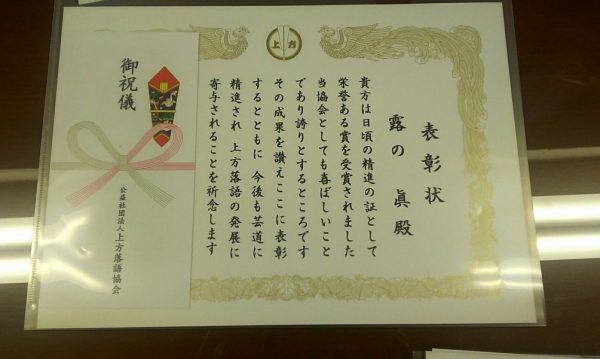 上方
表彰状
露の眞殿
貴方は日頃の精進の証として
栄誉ある賞を受賞されました
当協会としても喜ばしいこと
であり誇りとするところです
その成果を讃えここに表彰
するとともに 今後も芸道に
精進され 上方落語の発展に
寄与されることを祈念します
御祝儀
公益社団法人上方落語協会